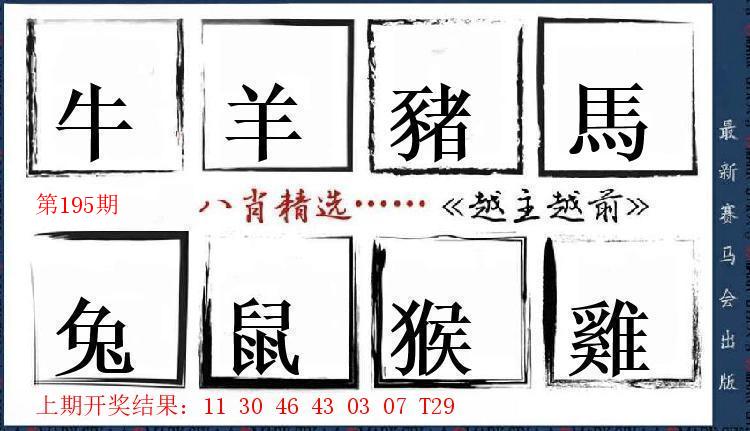 牛 羊 豬 馬
第195期 八肖精选……《越主越前》
兔 鼠 猴 雞
上期开奖结果：11 30 46 43 03 07 T29
最新赛马会出版